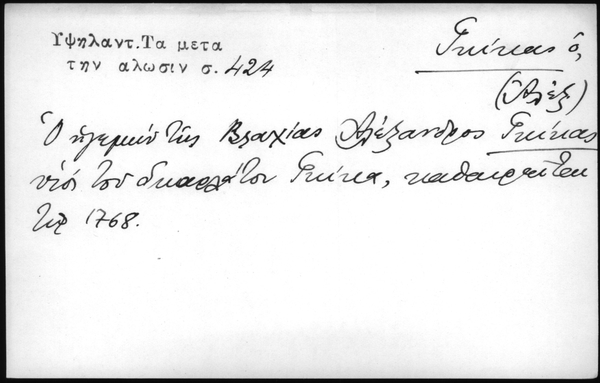 Υψηλαντ. Τα μετα
την αλωσιν σ. 424
Γκίκας ὁ,
(Ἀλέξ)
Ὁ ἡγεμών τῆς Βλαχίας Ἀλέξανδρος Γκίκας
υἱός τοῦ Σκαρλάτου Γκίκα, καθαιρεῖται
τῷ 1768.